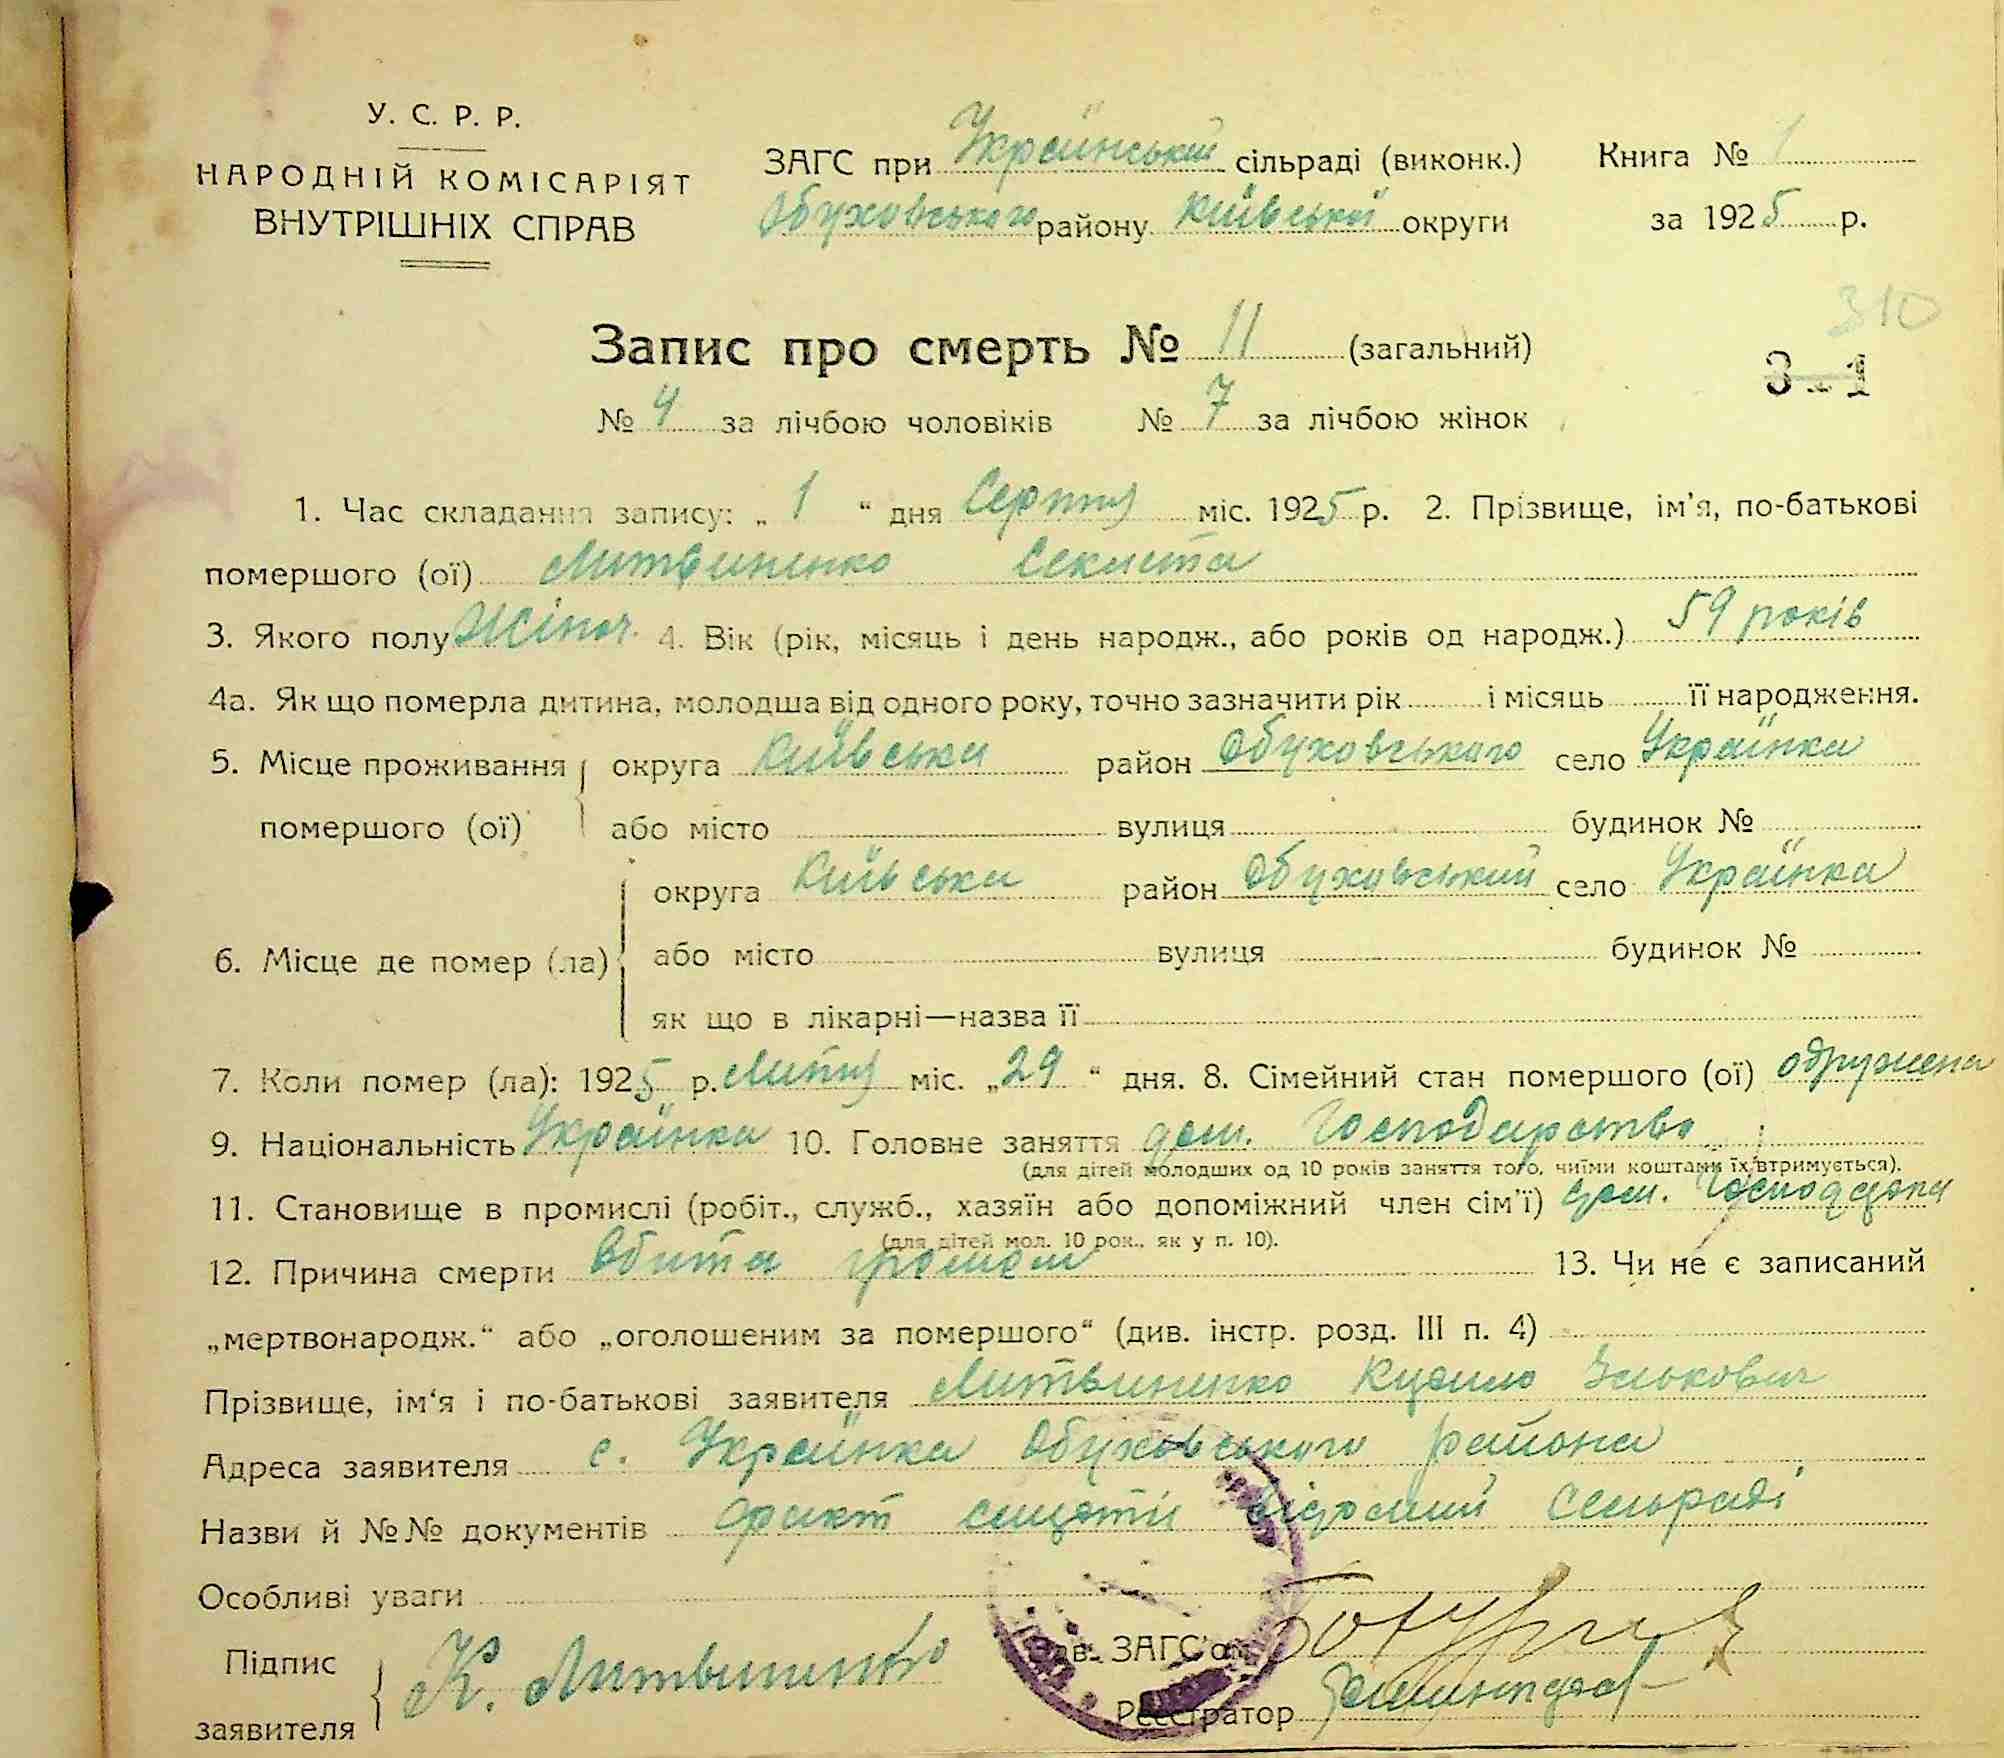 У. С. Р. Р.
НАРОДНІЙ КОМІСАРІЯТ
ВНУТРІШНІХ СПРАВ
ЗАГС при Український сільраді (виконк.) Книга № 1
Обуховського району Київської округи за 1925 р.
310
Запис про смерть № 11 (загальний)
3-1
№ 4 за лічбою чоловіків № 7 за лічбою жінок
1. Час складання запису: „ 1 “ дня Серпня міс. 1925 р. 2. Прізвище, ім'я, по-батькові
помершого (ої) Литвиненко Секлета
3. Якого полу Жіноч. 4. Вік (рік, місяць і день народж., або років од народж.) 59 років
4а. Як що померла дитина, молодша від одного року, точно зазначити рік і місяць її народження.
5. Місце проживання округа Київська район Обуховського село Українка
помершого (ої) або місто вулиця будинок №
округа Київська район Обуховський село Українка
6. Місце де помер (ла) або місто вулиця будинок №
як що в лікарні—назва її
7. Коли помер (ла): 1925 р. Липня міс. „29“ дня. 8. Сімейний стан помершого (ої) одружена
9. Національність Українка 10. Головне заняття дом. Господарство
(для дітей молодших од 10 років заняття того, чиїми коштами їх втримується).
11. Становище в промислі (робіт., служб., хазяїн або допоміжний член сім'ї) дом.
(для дітей мол. 10 рок., як у п. 10).
12. Причина смерти Вбита громом 13. Чи не є записаний
„мертвонародж.“ або „оголошеним за помершого“ (див. інстр. розд. III п. 4)
Прізвище, ім'я і по-батькові заявителя Литвиненко
Адреса заявителя с. Українка Обуховського района
Назви й №№ документів факт смерти відомий Сельраді
Особливі уваги
Підпис
заявителя К. Литвиненко
Зав. ЗАГС'ом
Реєстратор